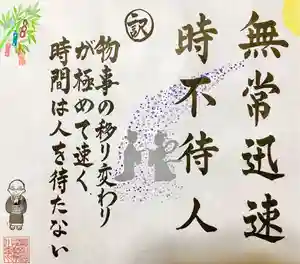 無常迅速
時不待人
訳
物事の移り変わり
が極めて速く
時間は人を待たない